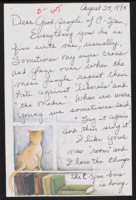 August 25, 1994
Dear Good people of C-Span
Everything you do as
fine with me, usually.
Sometimes my eyes cross
and glaze over when the
mean people repeat their
hate against liberals and
the Media. When we were
young we sometimes said
Say it again
and then sing it
I like your
room and
I love the things
the C-Span
is doing.